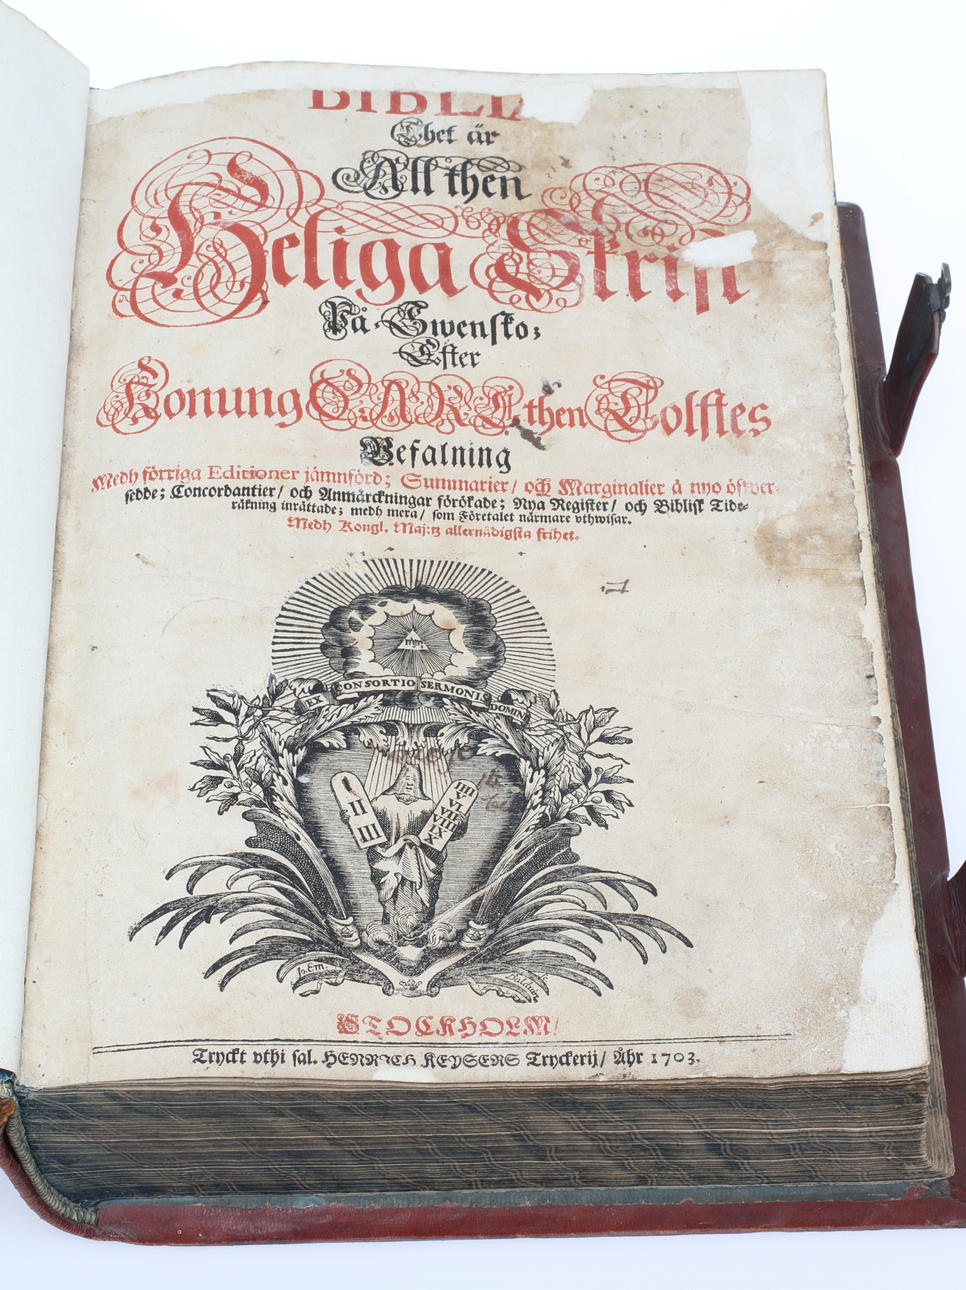 BIBLI
Thet är
All then
Heliga Skrift
På Swensko;
Efter
Konung CARL then Tolftes
Befalning
Medh förriga Editioner jämnförd; Summarier/ och Marginalier å nyo öfwer-
sedde; Concordantier/ och Anmärckningar förökade; Nya Register/ och Biblisk Tide-
räkning inrättade; medh mera/ som Företalet närmare vthwisar.
Medh Kongl. Maj:tz allernådigsta frihet.
EX CONSORTIO SERMONIS DOMINI
I
II
III
IIII
V
VI
VII
VIII
IX
X
STOCKHOLM/
Tryckt vthi sal. HENRICH KEYSERS Tryckerij/ Åhr 1703.